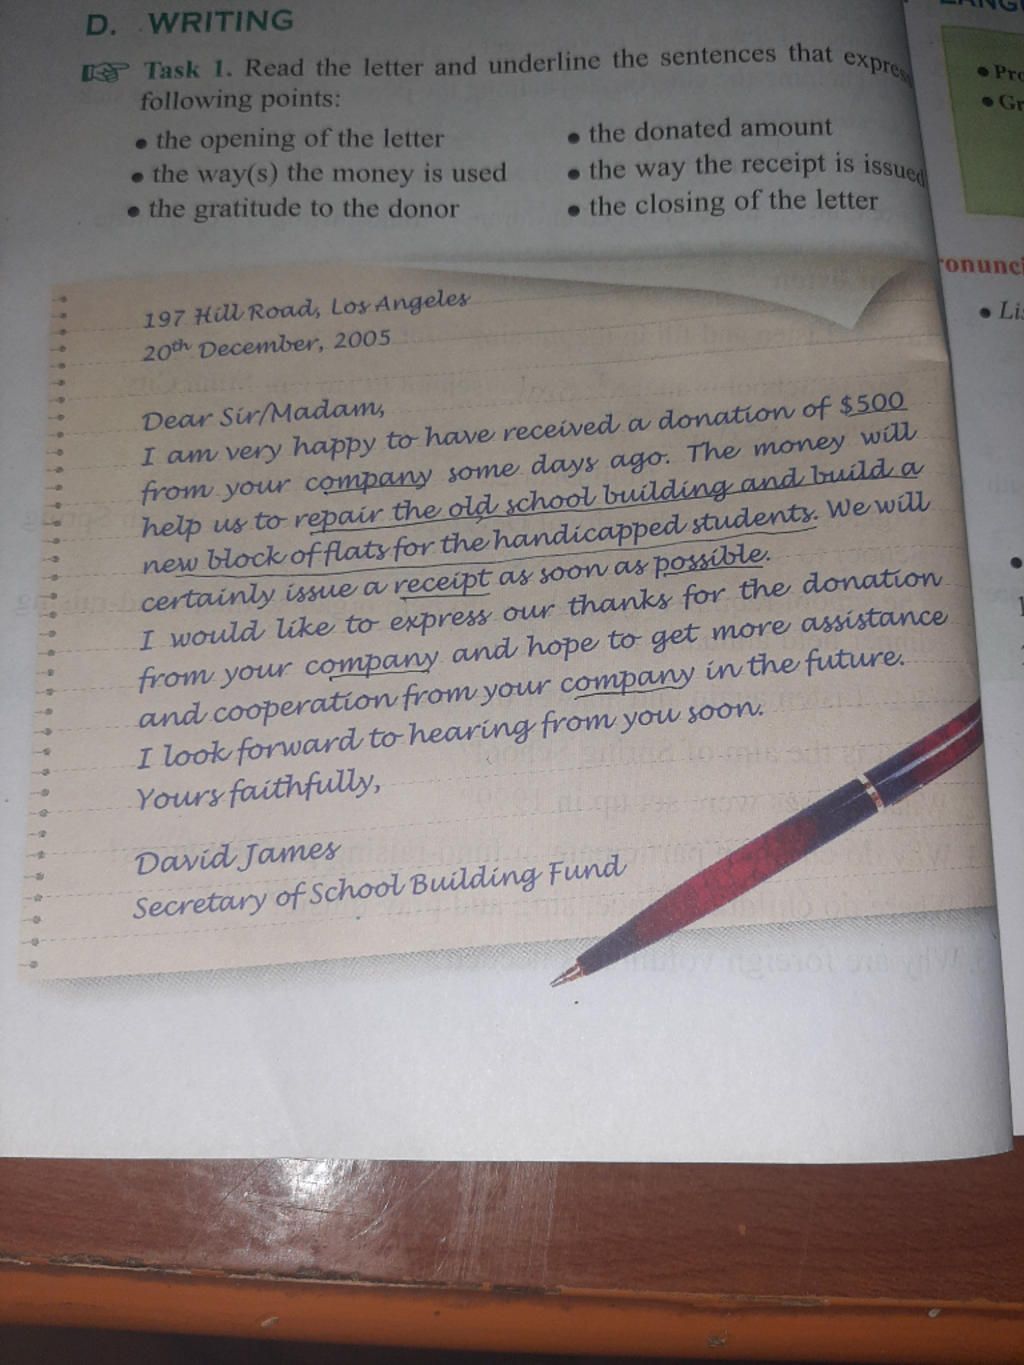 D. WRITING
Task 1. Read the letter and underline the sentences that
following points:
• the opening of the letter
• the donated amount
• the way(s) the money is used
• the way the receipt is issued
• the gratitude to the donor
• the closing of the letter
197 Hill Road, Los Angeles
20th December, 2005
Dear Sir/Madam,
I am very happy to have received a donation of $500
from your company some days ago. The money will
help us to repair the old school building and build a
new block of flats for the handicapped students. We will
certainly issue a receipt as soon as possible.
I would like to express our thanks for the donation
from your company and hope to get more assistance
and cooperation from your company in the future.
I look forward to hearing from you soon.
Yours faithfully,
David James
Secretary of School Building Fund